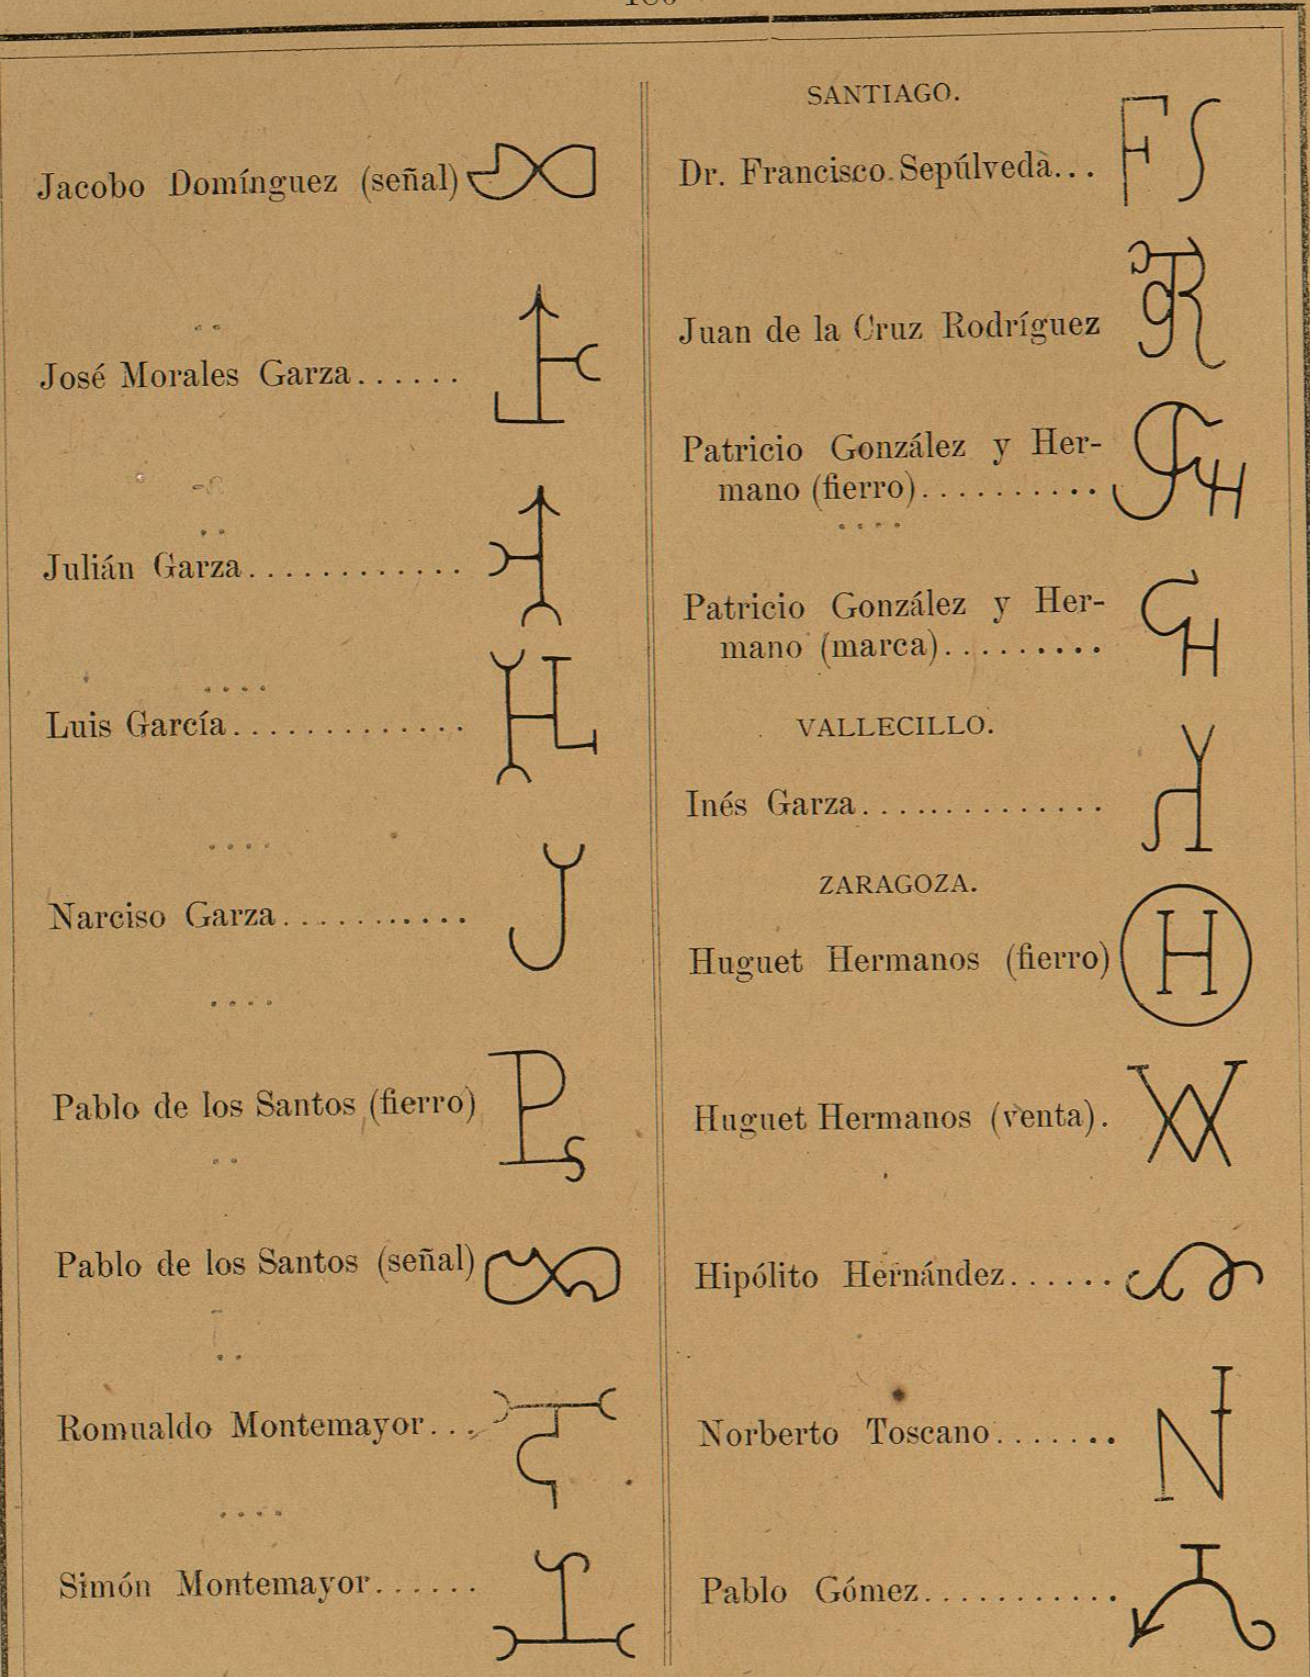 Jacobo Domínguez (señal)
José Morales Garza......
Julián Garza............
Luis García.............
Narciso Garza...........
Pablo de los Santos (fierro)
Pablo de los Santos (señal)
Romualdo Montemayor...
Simón Montemayor......
SANTIAGO.
Dr. Francisco Sepúlveda...
FS
Juan de la Cruz Rodríguez
Patricio González y Her-
mano (fierro)..........
Patricio González y Her-
mano (marca).........
VALLECILLO.
Inés Garza..............
ZARAGOZA.
Huguet Hermanos (fierro)
H
Huguet Hermanos (venta).
Hipólito Hernández......
Norberto Toscano.......
Pablo Gómez...........